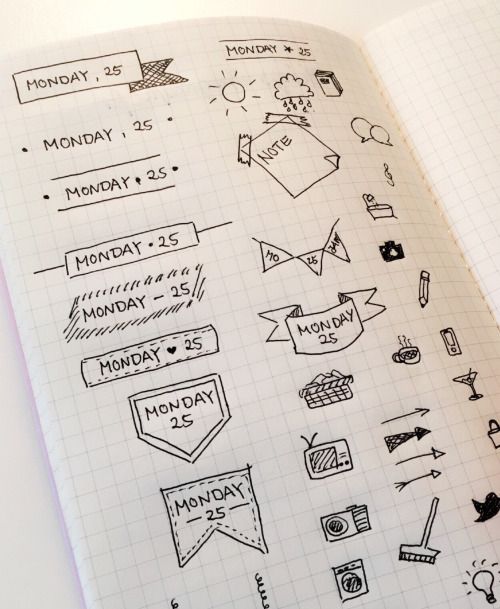 MONDAY, 25
MONDAY, 25
MONDAY • 25
MONDAY • 25
MONDAY — 25
MONDAY ♥ 25
MONDAY
25
MONDAY
— 25 —
MONDAY * 25
NOTE
MO 25
MONDAY
25